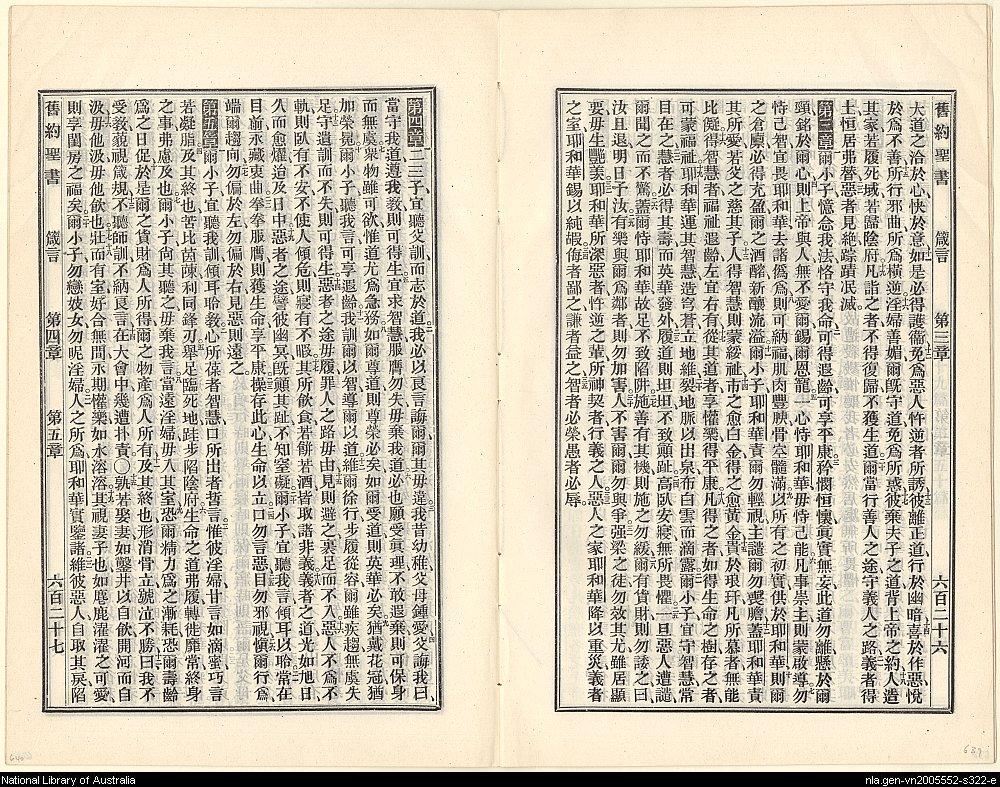 舊約聖書 箴言 第三章 六百二十六
大道之洽於心快於意如是必得護衞免爲惡人忤逆者所誘彼離正道行於幽暗喜於作惡悅
於爲不善所行邪曲所爲橫逆淫婦善媚爾旣守道免爲所惑彼棄夫子之道背上帝之約人造
其家若履死域若歸陰府凡詣之者不得復歸不獲生道爾當行善人之途守義人之路義者得
土恒居弗替惡者見絶踪蹟泯滅
第三章爾小子憶念我法恪守我命可得遐齡可享平康矜憫恒懷眞實無妄此道勿離懸於爾
頸銘於爾心則上帝與人無不愛爾錫爾恩寵一心恃耶和華毋恃己能凡事崇主則蒙啟導勿
恃己智宜畏耶和華去諸僞爲則可納福肌肉豐腴骨卒髓滿以所有之初實供於耶和華則爾
之倉廩必得充盈爾之酒醡新釀流溢爾小子耶和華責爾勿輕視主譴爾勿喪膽蓋耶和華責
其所愛若父之慈其子人得智慧則蒙綏祉市之愈白金得之愈黃金貴於琅玕凡所慕者無能
比儗得智慧者福祉遐齡左宜右有從其道者享懽樂得平康凡得之者如得生命之樹存之者
可蒙福祉耶和華運其智慧造穹蒼立地維裂地脈以出泉布白雲而滴露爾小子守智慧常
目在之慧者必得其壽而英華發外履道則坦坦不致顚趾高臥安寢無所畏懼一旦惡人遭譴
爾聞之而不驚蓋爾恃耶和華故足不致陷阱施善有其機則施之勿緩爾有貨財則勿諉之曰
汝且退明日予汝有樂與爾爲鄰者則勿加害人不害爾爾勿與爭强梁之徒勿效其尤雖居顯
要毋生艷羨耶和華所深惡者忤逆之輩所神契者行義之人惡人之家耶和華降以重災義者
之室耶和華錫以純嘏侮者鄙之謙者益之智者必榮愚者必辱
第四章二三子宜聽父訓而志於道我必以良言誨爾爾其毋違我昔幼稚父母鍾愛父誨我曰
當守我道遵我敎則可得生宜求智慧服膺勿失毋棄我道必也願受眞理不敢遐棄則可保身
而無虞衆物雖可欲惟道尤爲急務如爾尊道則尊榮必矣如爾受道則英華必矣猶戴花冠猶
加榮冕爾小子聽我言可享遐齡我訓爾以智導爾以道維爾徐行步履從容爾雖疾趨無虞失
足守道訓而不失則可得生惡者之途毋履罪人之路毋由見則避之褰足而不入惡人不爲不
軌則臥有不安不使人傾危則寢有不暇其所飲食若餅若酒皆取諸非義義者之道光如旭日
久而愈燿迨及日中惡者之途譬彼幽冥旣顚其趾不知窒礙爾小子宜聽我言傾耳以聆常在
目前永藏衷曲拳拳服膺則獲生命享平康操存此心生命以立口勿言惡目勿邪視愼行爲
端爾趨向勿偏於左勿偏於右見惡則遠之
第五章爾小子宜聽我訓傾耳聆敎心所葆者智慧口所出者哲言惟彼淫婦甘言如滴蜜巧言
若凝脂及其終也苦比茵蔯利同鋒刃舉足臨死地跬步陷陰府生命之道弗履轉徙靡常終身
之事弗慮及也爾小子尚其聽之毋棄我言當遠淫婦毋入其室恐爾精力爲之漸耗恐爾壽齡
爲之日促於是爾之貨財爲人所得爾之物產爲人所有及其終也形消骨立號泣不勝曰我不
受敎藐視箴規不聽師訓不納良言在大會中幾遭扑責〇孰若娶妻如鑿井以自飲開河而自
汲毋他汲毋他飲也壯而有室好合無間永期懽樂如水溶溶其視妻子也如麀鹿濯濯之可愛
則享閨房之福矣爾小子勿戀妓女勿昵淫婦人之所爲耶和華實鑒諸維彼惡人自取其戾陷
舊約聖書 箴言 第四章 第五章 六百二十七
National Library of Australia
nla.gen-vn2005552-s322-e